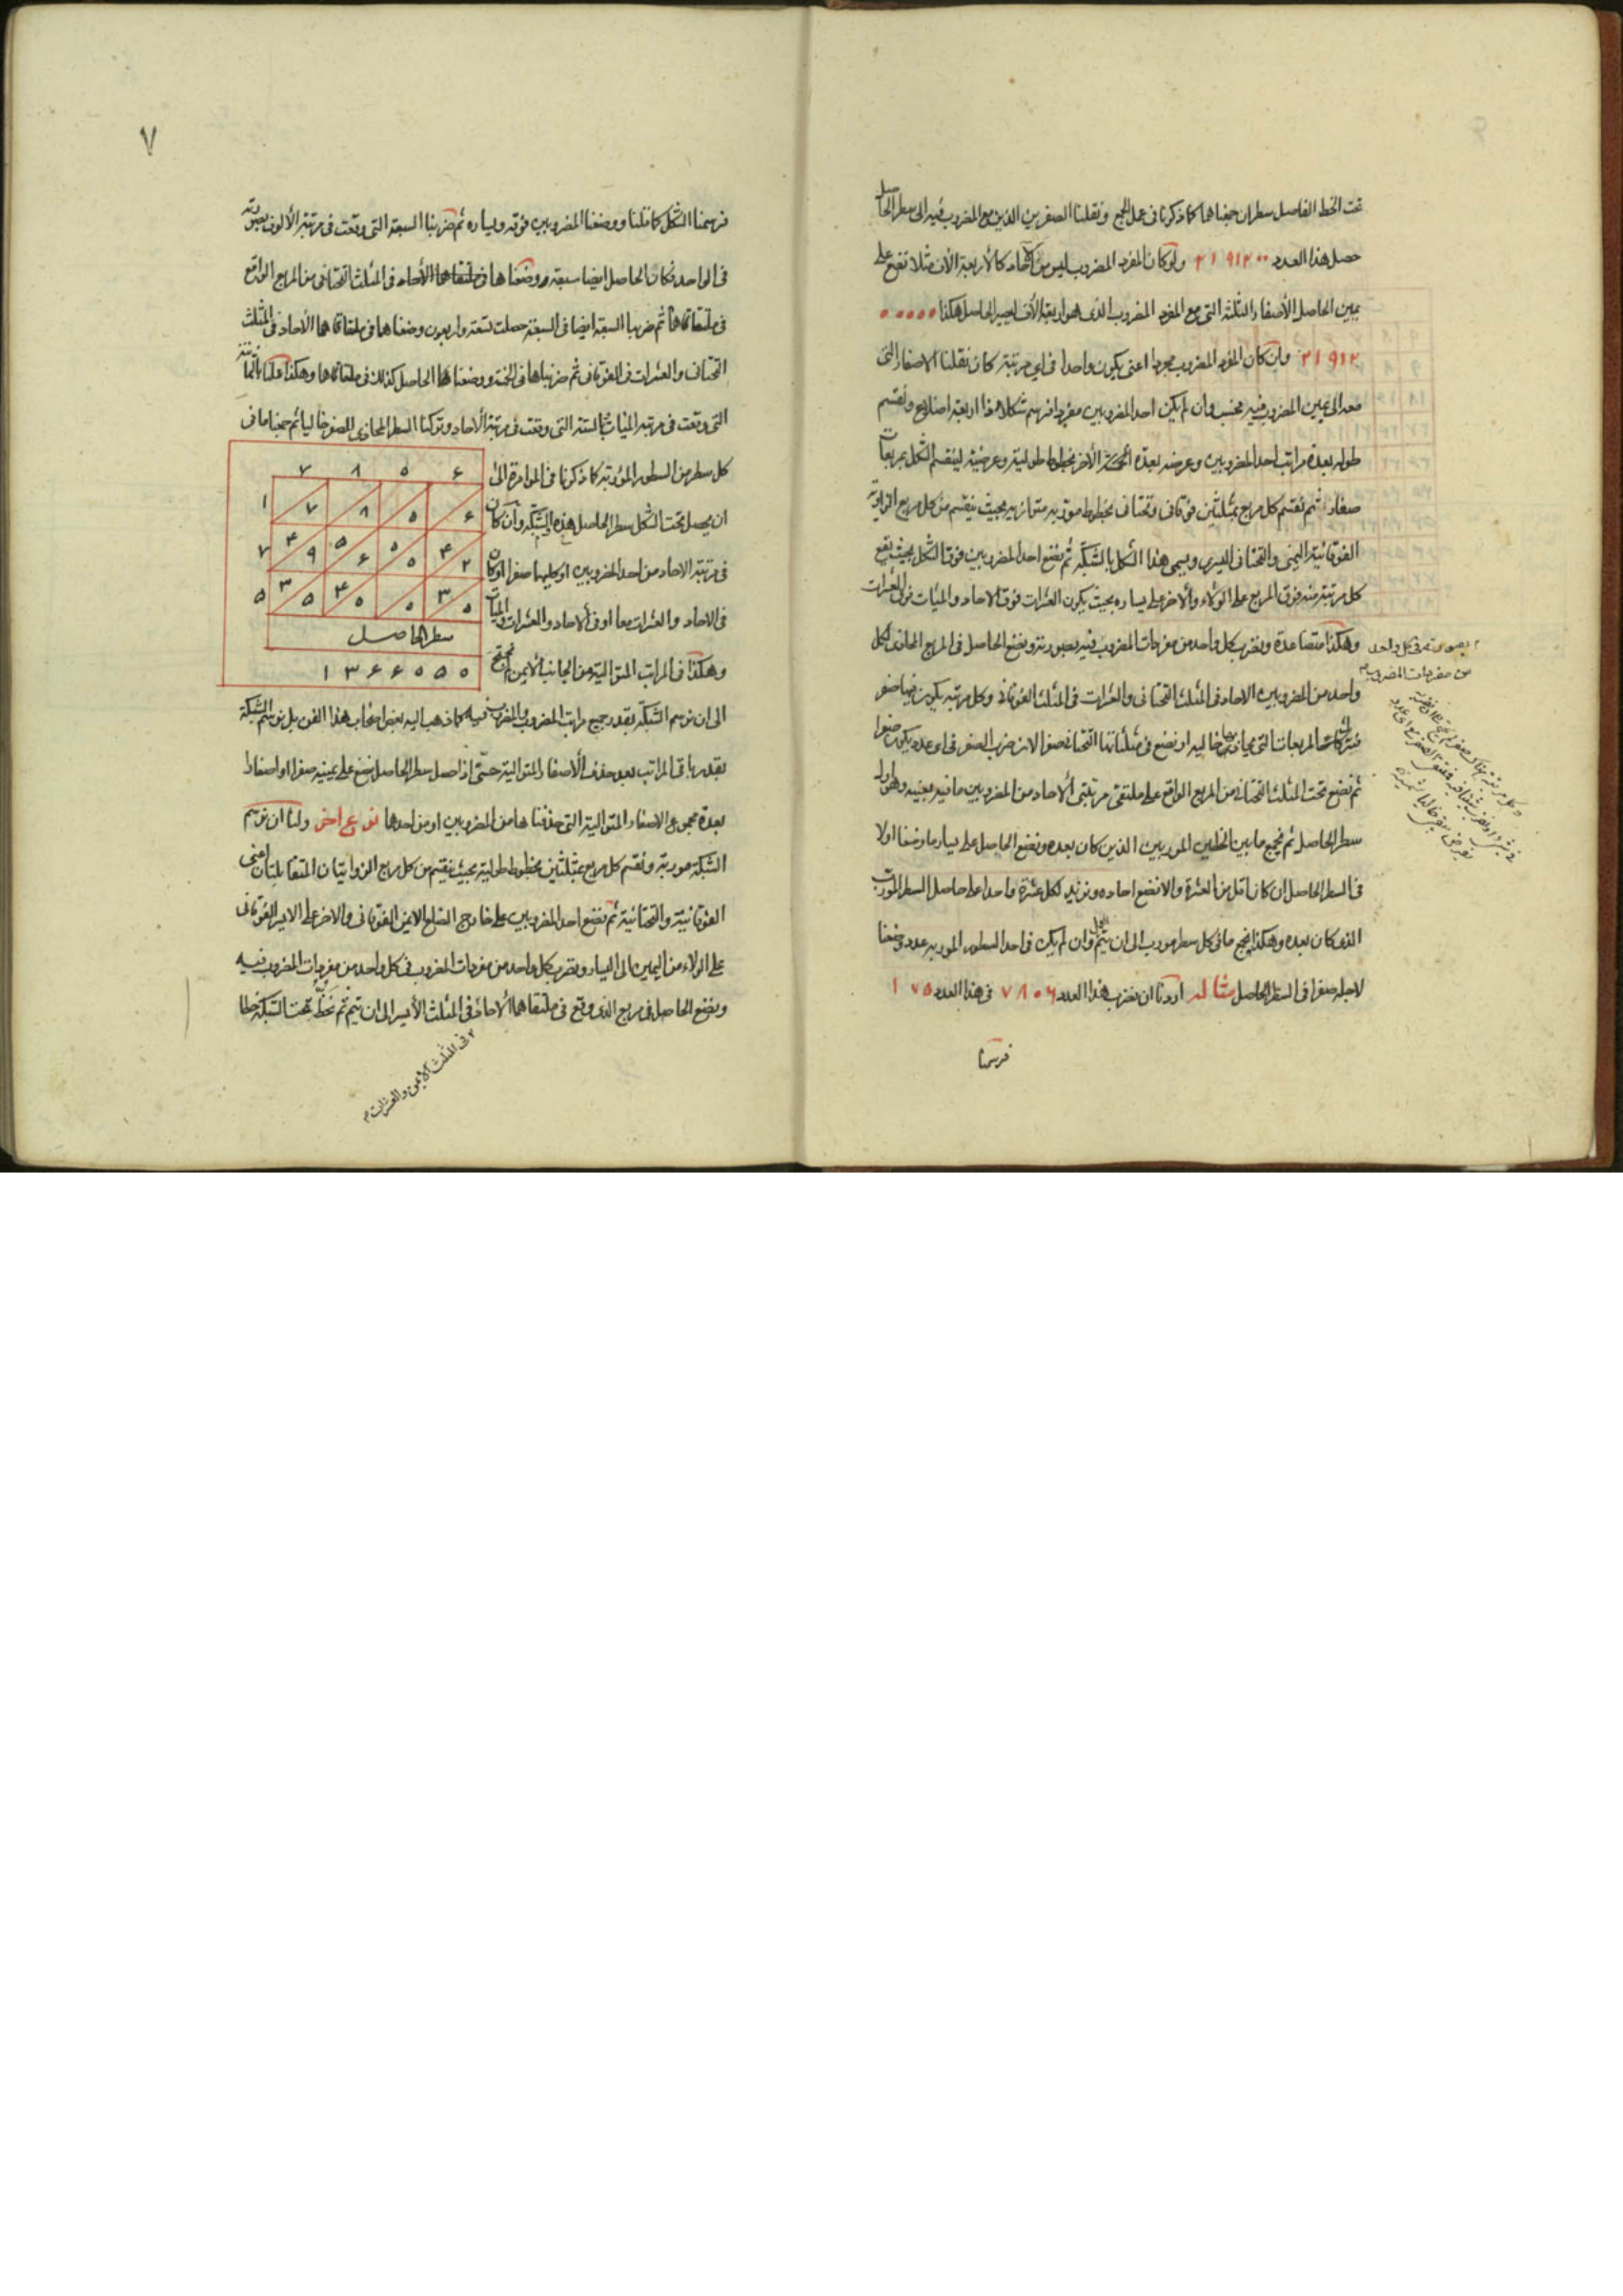 تحت الخط الفاصل سطران جمعناهما كما ذكرنا فى عمل الجمع ونقلنا الصفرين الذين مع المضروب فيه الى سطر الحاصل
حصل هذا العدد ٢١٩١٢٠٠ ولو كان المفرد المضروب ليس من الآحاد كالأربعة الآلاف مثلا نضع على
يمين الحاصل الأصفار الثلثة التى مع المفرد المضروب الذى هو اربعة الآف ليصير الحاصل هكذا ٠٠٠٠٠
٢١٩١٢ وان كان المفرد المضروب مجردا اعنى يكون واحدا فى اى مرتبة كان نقلنا الاصفار التى
معه الى يمين المضروب فيه فحسب وان لم يكن احد المضروبين مفردا فنرسم شكلا ذا اربعة اضلاع ونقسم
طوله بعدة مراتب احد المضروبين وعرضه بعدة مراتب الآخر بخطوط طولية وعرضية لينقسم الشكل بمربعات
صغار ثم نقسم كل مربع بمثلثين فوقانى وتحتانى بخطوط موربة متوازية بحيث ينقسم من كل مربع الزاوية
الفوقانية اليمنى والتحتانى اليسرى ويسمى هذا الشكل بالشبكة ثم نضع احد المضروبين فوق الشكل بحيث يقع
كل مرتبة منه فوق المربع على الولاء والآخر على يساره بحيث يكون العشرات فوق الآحاد والمئات فوق العشرات
وهكذا متصاعدة ونضرب كل واحد من مفردات المضروب فيه بصورته ونضع الحاصل فى المربع المحاذى لكل
بصورته فى كل واحد
من مفردات المضروب
واحد من المضروبين الآحاد فى المثلث التحتانى والعشرات فى المثلث الفوقانى وكل مرتبة يكون فيها صفر
فنترك المربعات التى يحاذيها خالية او نضع فى مثلثاتها التحتانية صفرا لان ضرب الصفر فى اى عدد يكون صفرا
ثم نضع تحت المثلث التحتانى من المربع الواقع على ملتقى مرتبتى الآحاد من المضروبين ما فيه بعينه وهو اول
سطر الحاصل ثم نجمع ما بين الخطين الموربين الذين كان بعده ونضع الحاصل على يسار ما وضعنا اولا
فى السطر الحاصل ان كان اقل من العشرة والا نضع احاده ونزيد لكل عشرة واحدا على حاصل السطر المورب
الذى كان بعده وهكذا نجمع ما فى كل سطر مورب الى ان يتم العمل وان لم يكن فى احد السطور الموربه عدد وضعنا
لاجله صفرا فى السطر الحاصل مثاله اردنا ان نضرب هذا العدد ٧٨٠٦ فى هذا العدد ١٧٥
فرسمنا
٧
فرسمنا الشكل كما قلنا ووضعنا المضروبين فوقه ويساره ثم ضربنا السبعة التى وقعت فى مرتبة الألوف بصورته
فى الواحد فكان الحاصل ايضا سبعة ووضعناها فى ملتقاهما الآحاد فى المثلث التحتانى من المربع الواقع
فى ملتقاهما ثم ضربنا السبعة ايضا فى السبعة حصلت تسعة واربعون وضعناها فى ملتقاهما الآحاد فى المثلث
التحتانى والعشرات فى الفوقانى ثم ضربناها فى الخمسة ووضعنا الحاصل كذلك فى ملتقاهما وهكذا عملنا بالثمانية
التى وقعت فى مرتبة المئات وبالستة التى وقعت فى مرتبة الآحاد وتركنا السطر المحاذى للصفر خاليا ثم جمعنا ما فى
كل سطر من السطور الموربة كما ذكرنا فى المؤامرة الى
ان يحصل تحت الشكل سطر الحاصل هذه الشبكة وان كان
فى مرتبة الآحاد من احد المضروبين او كليهما صفر او كان
فى الآحاد والعشرات معا او فى الآحاد والعشرات والمئات
وهكذا فى المراتب المتوالية من الجانب الأيمن لم نحتج
٧ ٨ ٥ ۶
١ ٧ ٨ ٥ ۶
٧ ۴ ٩ ٥ ۶ ٥ ٥ ۴ ٢
٥ ٣ ٥ ۴ ٥ ٥ ٣ ٥
سطر الحاصل
١ ٣ ۶ ۶ ٥ ٥ ٥
الى ان نرسم الشبكة بقدر جميع مراتب المضروب والمضروب فيه كما ذهب اليه بعض اصحاب هذا الفن بل نرسم الشبكة
بقدر باقى المراتب بعد حذف الأصفار المتوالية حتى اذا حصل سطر الحاصل نضع على يمينه صفرا او اصفارا
بعدة مجموع الاصفار المتوالية التى حذفناها من المضروبين او من احدهما نوع اخر ولنا ان نرسم
الشبكة موربة ونقسم كل مربع بمثلثين بخطوط طولية بحيث ينقسم من كل مربع الزاويتان المتقابلتان اعنى
الفوقانية والتحتانية ثم نضع احد المضروبين على خارج الضلع الايمن الفوقانى والاخر على الايسر الفوقانى
على الولاء من اليمين الى اليسار ونضرب كل واحد من مفردات المضروب فى كل واحد من مفردات المضروب فيه
ونضع الحاصل فى مربع الذى وقع فى ملتقاهما الآحاد فى المثلث الأيسر الى ان يتم ثم نخط تحت الشبكة خطا
فى المثلث الأيمن والعشرات